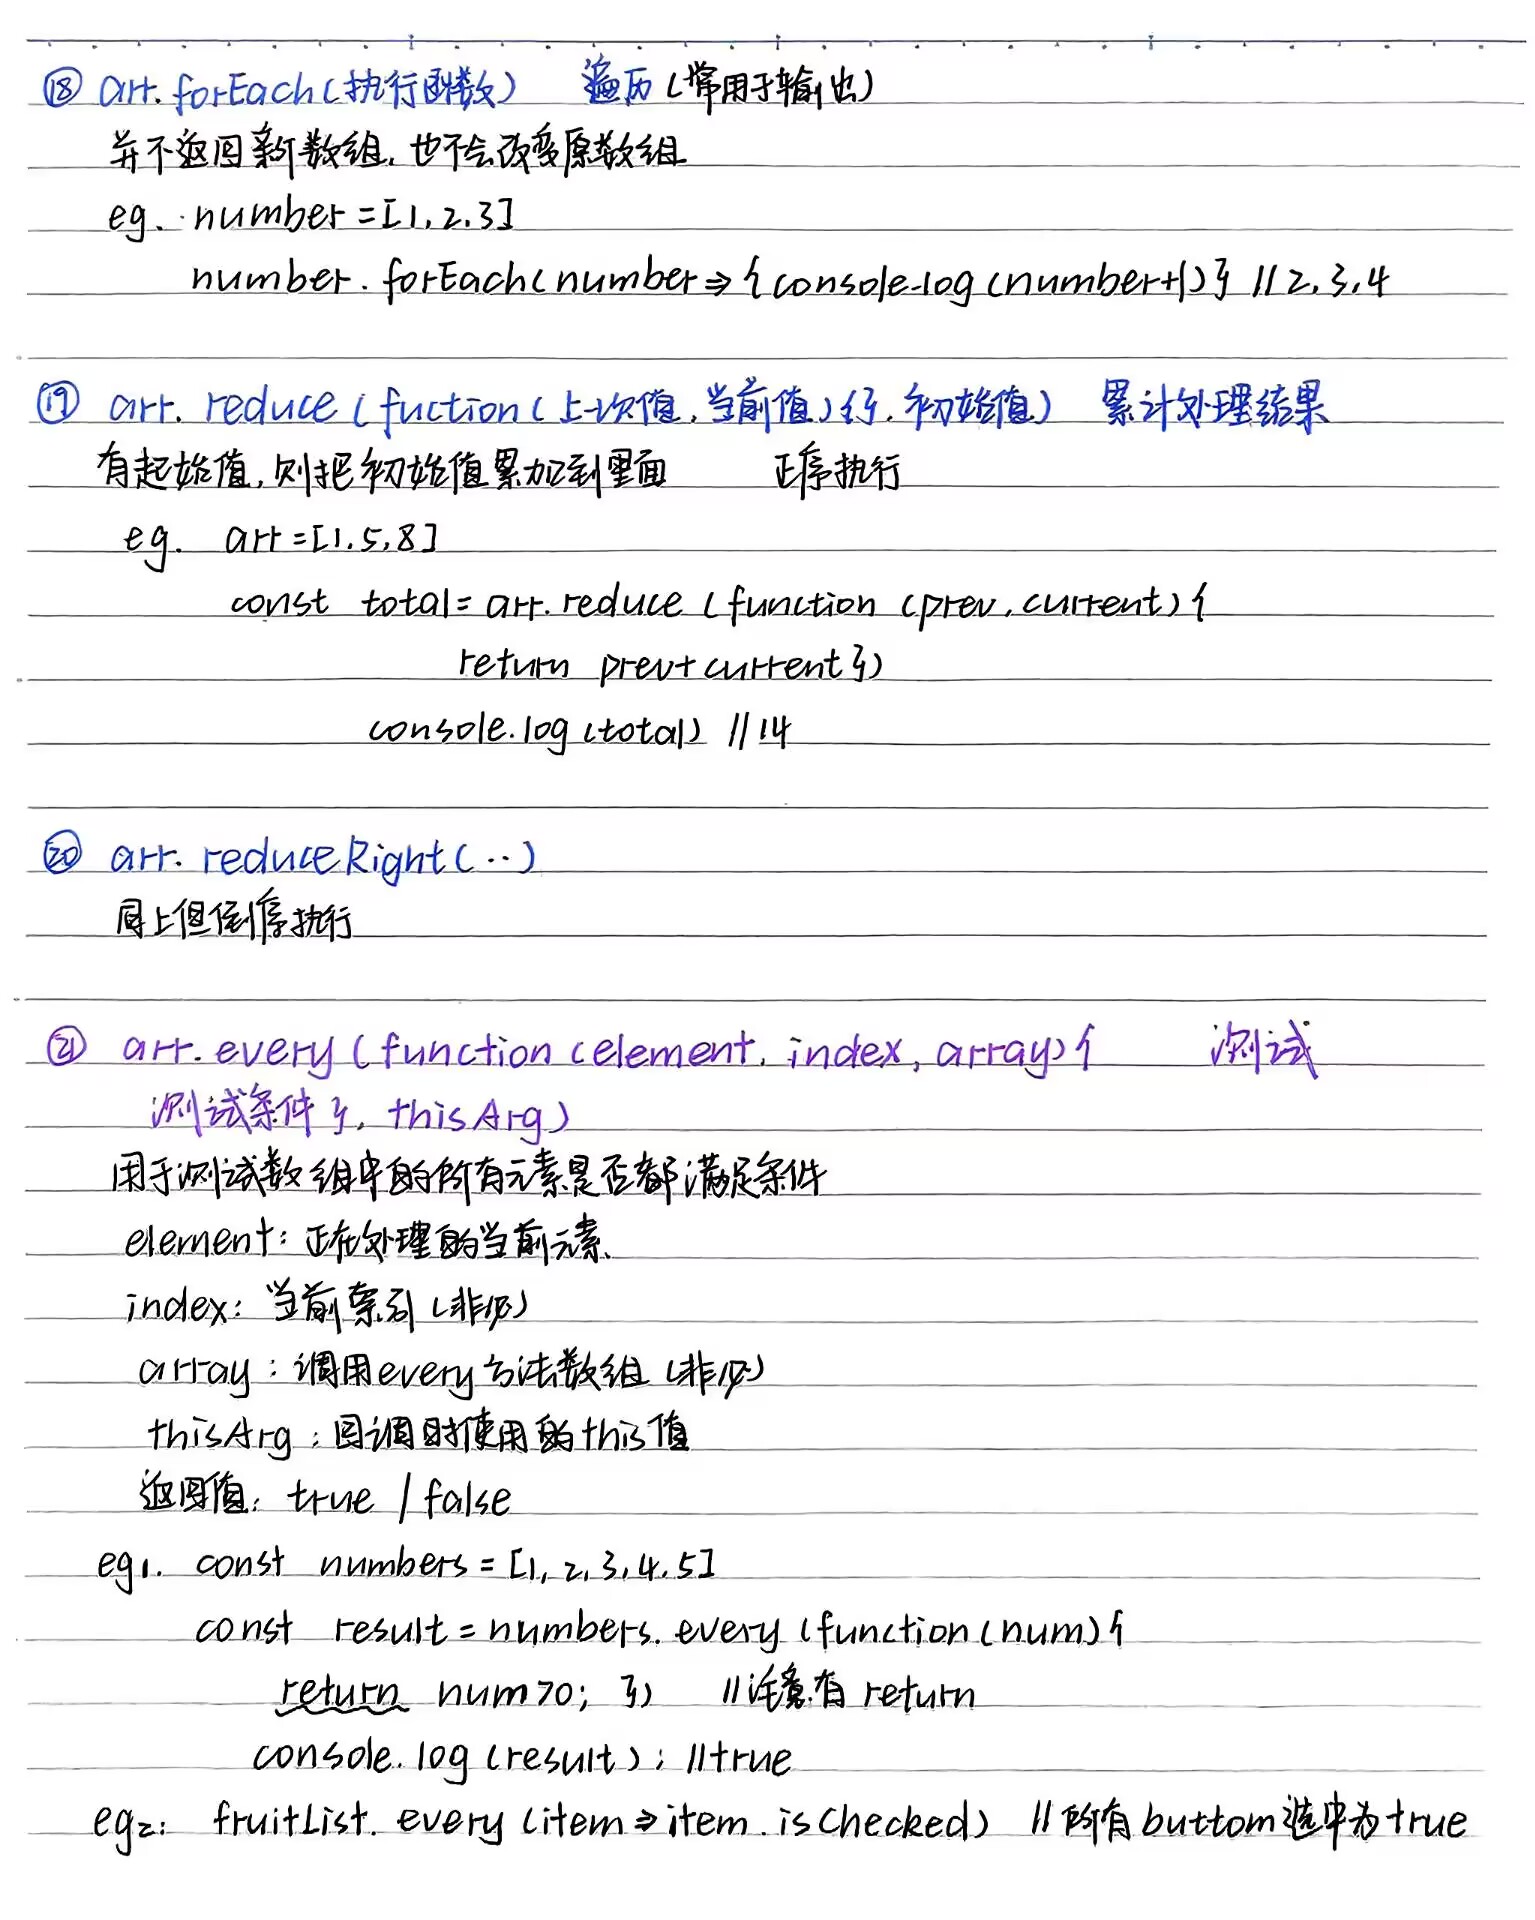 ⑱ arr.forEach(执行函数) 遍历(常用于输出)
并不返回新数组,也不会改变原数组
eg. number=[1,2,3]
number.forEach(number⇒{console.log(number+1)} //2,3,4
⑲ arr.reduce(fuction(上一次值,当前值){},初始值) 累计处理结果
有起始值,则把初始值累加到里面 正序执行
eg. arr=[1,5,8]
const total=arr.reduce(function(prev,current){
return prev+current})
console.log(total) //14
⑳ arr.reduceRight(..)
同上但倒序执行
㉑ arr.every(function(element,index,array){ 测试
测试条件},thisArg)
用于测试数组中的所有元素是否都满足条件
element:正在处理的当前元素
index:当前索引(非必)
array:调用every方法数组(非必)
thisArg:回调时使用的this值
返回值:true/false
eg1. const numbers=[1,2,3,4,5]
const result=numbers.every(function(num){
return num>0; }) //注意有return
console.log(result); //true
eg2: fruitList.every(item⇒item.isChecked) //所有buttom选中为true